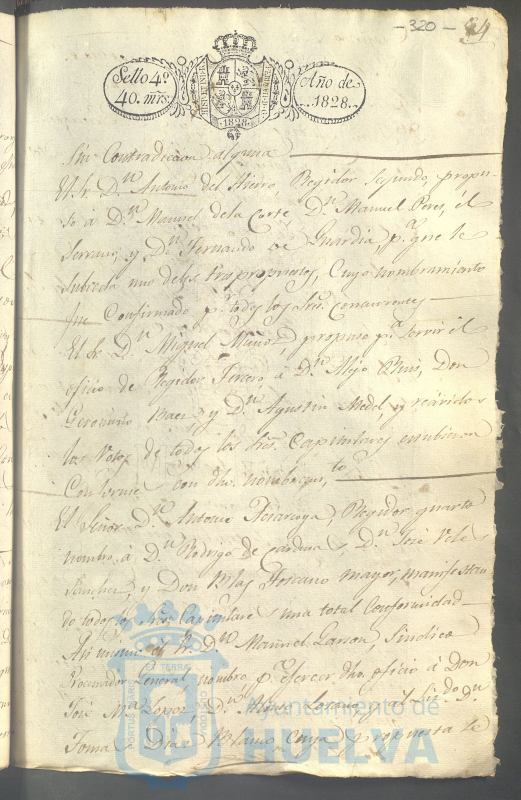 - 320 -
Sello 4º
40. mrs.
HISPANIARUM
1828
Año de
1828.
Sin Contradicion alguna
El Sr. Dn. Antonio del Hierro, Regidor segundo, propu-
so á Dn. Manuel de la Corte, Dn. Manuel Peres, él
Serrano, y Dn. Fernando de Guardia pa. que le
subceda uno de los tres propuestos, Cuyo nombramiento
fue Confirmado pr. todos los Sres. concurrentes
El Sr. Dn. Miguel Muñoz propuso pa. servir él
oficio de Regidor Tercero, á Dn. Alejo Ruis, Don
Geronimo Baez, y Dn. Agustin Medel y recividos
los Votos de todos los Sres. Capitulares estubieron
Conformes con dho. nombram.to
El Señor Dn. Antonio Regidor quarto
nombró á Dn. Rodrigo de Cardenas, Dn. José Veles
Sanchez, y Don Blas Toscano mayor, manifestan
do todos los Sres. Capitulares una total Conformidad
Asi mismo él Sr. Dn. Manuel Garzon, Sindico
Procurador General nombró pa. Exercer dho. oficio á Don
José Ma. Lopez, Dn. Lozano, y Dn.
Tomas Dias Blanco, Cuya propuesta se
PORTUS MARIS ET TERRAE CUSTODIA
Ayuntamiento de
HUELVA